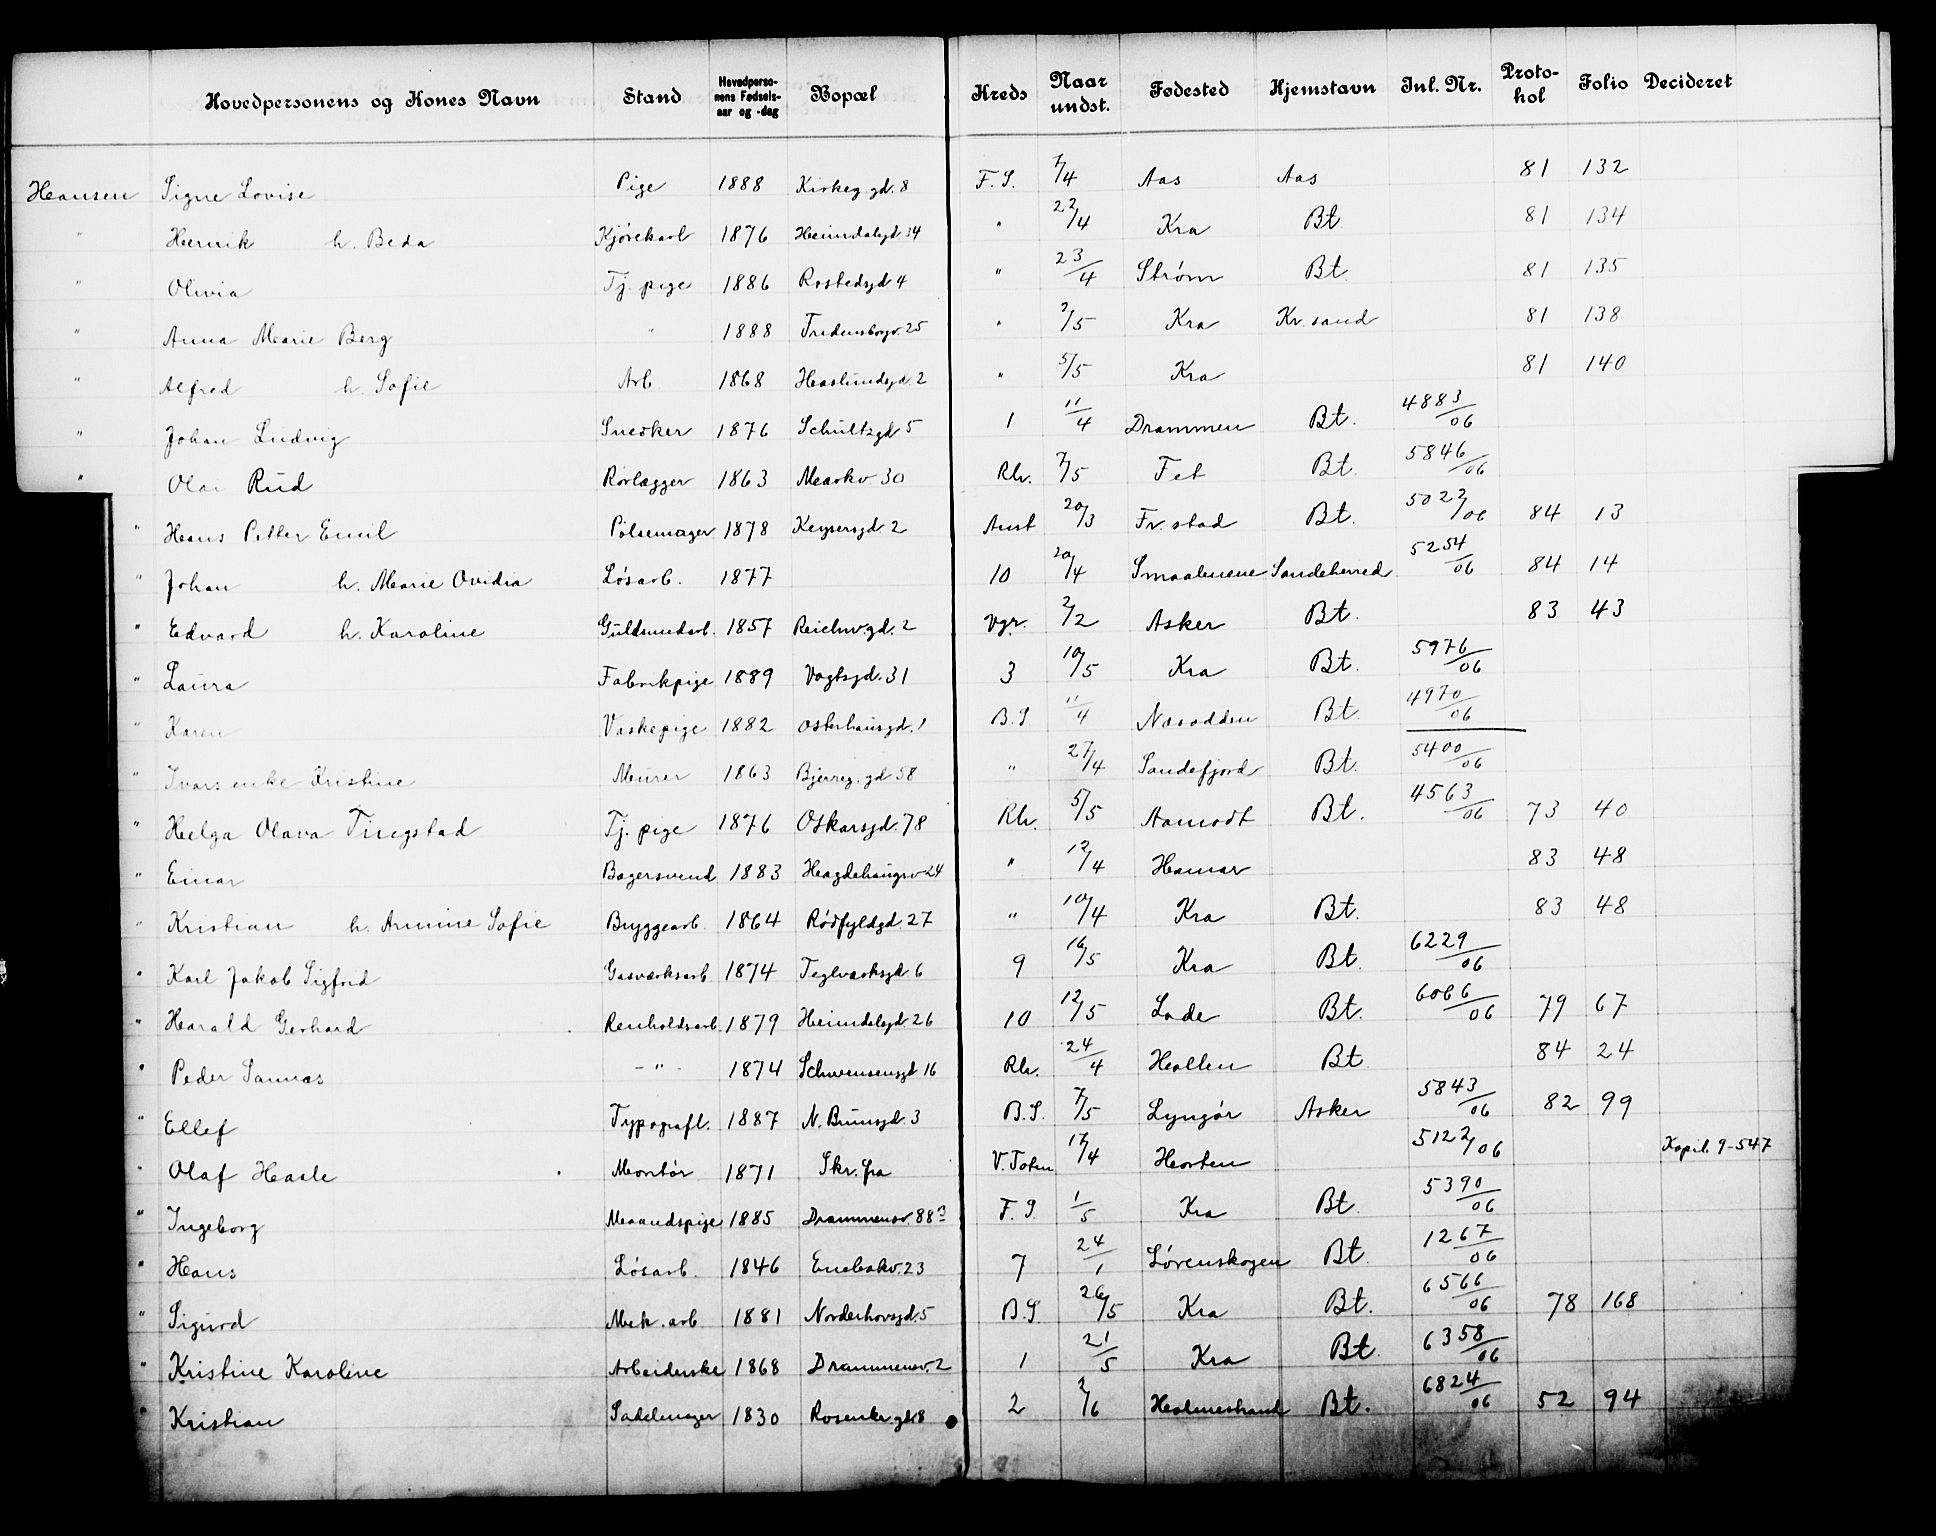 Hovedpersonens og Kones Navn Stand Hovedpersonens Fødselsaar og -dag Bopæl Kreds Naar undst. Fødested Hjemstavn Inl. Nr. Protohol Folio Decideret
Hansen Signe Lovise Pige 1888 Kirkeg.gd. 8 F. S. 7/4 Aas Aas 81 132
" Henrik h. Beda Kjørekarl 1876 Heimdalsgd. 34 " 22/4 Kra Bt 81 134
" Olivia Tj. pige 1886 Rostedsgd 4 " 23/4 Strøm Bt. 81 135
" Anna Marie Berg " 1888 Fredensborgv. 25 " 2/5 Kra Kr. sand 81 138
" Alfred h. Sofie Arb. 1868 Haslumsgd. 2 " 5/5 Kra 81 140
" Johan Ludvig Snedker 1876 Schultzgd 5 1 11/4 Drammen Bt. 4883/06
" Olai Rud Rørlægger 1863 Markv. 30 Rh. 7/5 Fet Bt. 5846/06
" Hans Petter Emil Pølsemager 1878 Keysersgd. 2 Anst 20/3 Fr. stad Bt. 5022/06 84 13
" Johan h. Marie Ovidia Løsarb. 1877 10 20/4 Smaalenene Sandeherred 5254/06 84 14
" Edvard h. Karoline Guldsmedarb. 1857 Reichwgd. 2 Vgr. 2/2 Asker Bt. 83 43
" Laura Fabrikpige 1889 Vogtsgd. 31 3 10/5 Kra Bt. 5976/06
" Karen Vaskepige 1882 Osterhausgd. 1 B. S 11/4 Næsodden Bt. 4970/06
" Ivars enke Kristine Murer 1863 Bjerreg. gd 58 " 27/4 Sandefjord Bt. 5400/06
" Helga Olava Tingstad Tj. pige 1876 Oskarsgd. 78 Rh. 5/5 Aamodt Bt. 4563/06 73 40
" Einar Bagersvend 1883 Hægdehaugsv 24 " 12/4 Hamar 83 48
" Kristian h. Armine Sofie Bryggearb. 1864 Rødfyldgd. 27 " 10/4 Kra Bt. 83 48
" Karl Jakob Sigfrid Gasværksarb. 1874 Teglværksgd 6 9 16/5 Kra Bt. 6229/06
" Harald Gerhard Renholdsarb. 1879 Heimdalsgd. 26 10 12/5 Lade Bt. 6066/06 79 67
" Peder Sannæs - " - 1874 Schwensensgd. 16 Rh. 24/4 Hollen Bt 84 24
" Ellef Typografl. 1887 N. Brunsgd. 3 B. S. 7/5 Lyngør Asker 5843/06 82 99
" Olaf Hasle Montør 1871 Skr. fra V. Toten 17/4 Horten 5122/06 Kopib. 9-547
" Ingeborg Maandspige 1885 Drammensv. 88 F. S. 1/5 Kra Bt. 5390/06
" Hans Løsarb. 1846 Enebakv. 23 7 24/1 Lørenskogen Bt. 1267/06
" Sigurd Mek. arb. 1881 Norderhovsgd. 5 B. S. 26/5 Kra Bt. 6566/06 78 168
" Kristine Karoline Arbeiderske 1868 Drammensv. 2 1 21/5 Kra Bt. 6358/06
" Kristian Sadelmager 1830 Rosenkr.gd. 8 2 2/6 Holmestrand Bt. 6824/06 52 94